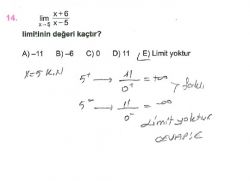 14. lim x→5 x+6 / x-5
limitinin değeri kaçtır?
A) –11 B) –6 C) 0 D) 11 E) Limit yoktur
x=5 K.N 5⁺ → 11/0⁺ = +∞
5⁻ → 11/0⁻ = -∞ farklı
Limit yoktur
CEVAP: E